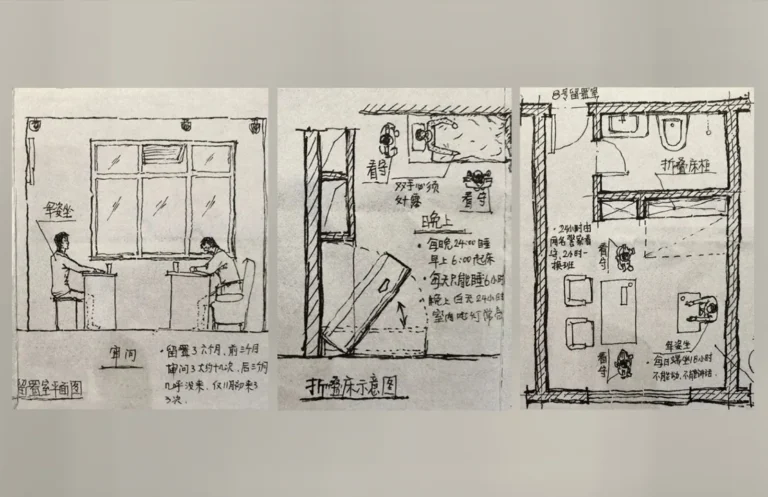 军姿坐
审问
留置室平面图
·留置了六个月，前三个月
审问了大约十几次，后三个月
几乎没来，仅
3次.
看守
双手必须
外露
看守
晚上
·每晚24:00睡
早上6:00起床
·每天只能睡6小时
·晚上白天24小时
室内电灯常亮
折叠床示意图
8号留置室
折叠床柜
·24小时由
两名警察看
守，2小时一
换班
看守
看守
军姿坐
·每日端坐18小时
不能动，不能讲话.